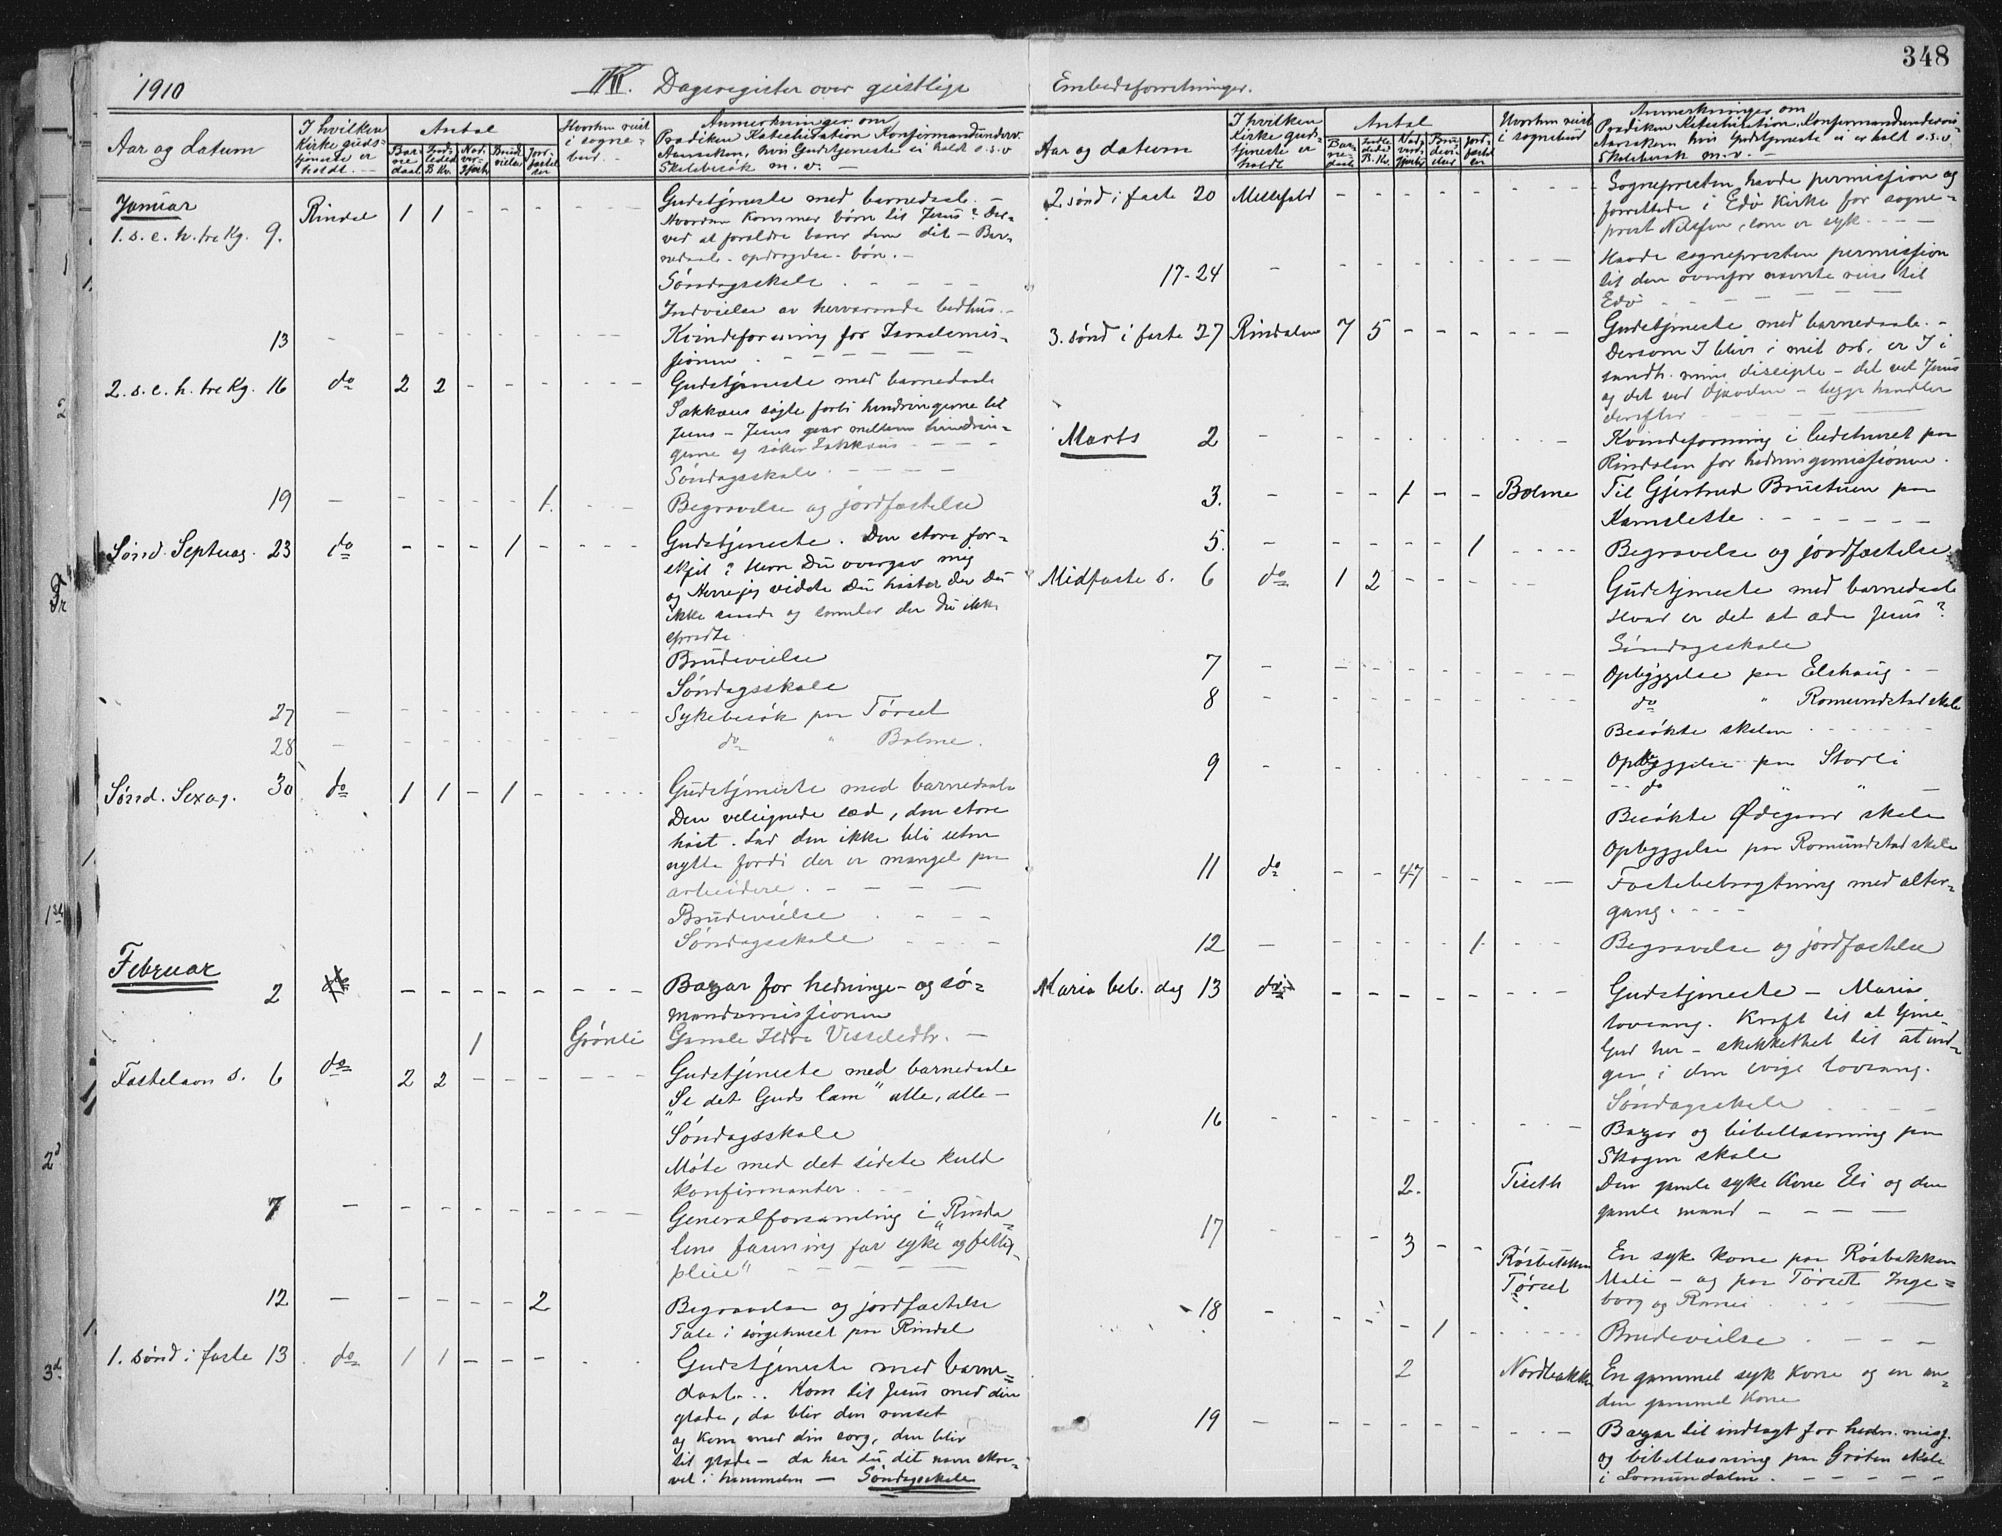 348
1910 Dagsregister over geistlige
Aar og datum
I hvilken Kirke gudstjeneste er holdt.
Antal
Hvorhen reist i sognebud.
Anmerkninger om
Prædiken, Katechisation, Konfirmandunderv.
Aarsaken, hvis Gudstjeneste ei holdt o.s.v
Skolebesøk m. v. —
Januar
1. s. e. h. tre Kg. 9. Rindal 1 1 - Gudstjeneste med barnedaab. —
Hvordan kommer børn til Jesus? Der-
ved at foraldre bærer dem dit — Bar-
nedaab - opdragelse - bøn. —
Søndagsskole
Indvielse av herværende bedhus. -
13 Kvindeforening for Israelsmis-
sionen
2. s. e. h. tre Kg. 16 do 2 2 Gudstjeneste med barnedaab
Sakkæus søgte forbi hindringerne til
Jesus — Jesus gaar mellem hindrin-
gerne og søker Sakkæus
Søndagsskole.
19 1. Begravelse og jordfæstelse
Sønd. Septuag. 23 do 1 Gudstjeneste. Den store for-
skjel? Herre Du overgav mig
og Herre jeg vidste Du høster der Du
ikke saade og samler der Du ikke
spredte.
Brudevielse
Søndagsskole
27 Sykebesøk paa Tørset
28 do " Bolme.
Sønd. Sexag. 30 do 1 1 - 1 - Gudstjeneste med barnedaab
Den velsignede sæd, den store
høst. Lad den ikke bli uten
nytte fordi der er mangel paa
arbeidere.
Brudevielse
Søndagsskole
Februar
2 Bazar for hedninge- og sø-
mandsmissionen
1 Grønli Gamle
Fastelavn s. 6 do 2 2 Gudstjeneste med barnedaab
"Se det Guds lam" alle, alle —
Søndagsskole
Møte med det sidste kuld
konfirmanter.
7 Generalforsamling i "Rinda-
lens forening for syke og fattig-
pleie"
12 2 Begravelse og jordfæstelse
Tale i sørgehuset paa Rindal
1. sønd i faste 13 do 1 1 Gudstjeneste med barne-
daab.. Kom til Jesus med din
glæde, da blir den renset
og kom med din sorg, den blir
til glæde — da har du dit navn skre-
vet i himmelen — Søndagsskole
Embedsforretninger.
Aar og datum
I hvilken Kirke gudstjeneste er holdt
Antal
Hvorhen reist i sognebud
Anmerkninger om
Prædiken, Katechisation, Konfirmandundervis
Aarsaken hvis Gudstjeneste ei er holdt o.s.v
Skolebesøk m.v. —
2 sønd i faste 20 Sognepresten havde permission og
forrettede i Edø Kirke for sogne-
prest Nilssen, som er syk.
17-24 Havde sognepresten permission
til den ovenfor nævnte reise til
Edø
3. sønd i faste 27 Rindalen 7 5 Gudstjeneste med barnedaab. -
Dersom I blive i mit ord, er I i
sandh. mine disciple — det vel Jesus
og det ved djævelen — begge handler
derefter
Marts 2 Kvindeforening i bedehuset paa
Rindalen for hedningemissionen.
3. 1 Bolme Til Gjertrud Brustuen paa
Kamslette
5. 1 Begravelse og jordfæstelse
Midfaste s. 6 do 1 2 Gudstjeneste med barnedaab
Hvad er det at æde Jesus?
Søndagsskole
7 Opbyggelse paa Elshaug
8 do " Romundstad skole
Besøkte skolen
9 Opbyggelse paa Storli
do " "
Besøkte Ødegaard skole
Opbyggelse paa Romundstad skole
11 do 47 Fastebetragtning med alter-
gang.
12 1 Begravelse og jordfæstelse
Maria beb. dag 13 do Gudstjeneste — Marias
lovsang. Kraft til at tjene
Gud her — skikkethet til at ind-
gaa i den evige lovsang.
Søndagsskole
16 Bazar og bibellæsning paa
Skogen skole
2. Tiseth Den gamle syke Kone Eli og den
gamle mand
17 3 Røsbakken En syk kone paa Røsbakken
Tørset Mali — og paa Tørset Inge-
borg og
18 1 Brudevielse
2 Nordbakken En gammel syk Kone og en an-
den gammel Kone
19 Bazar til indtægt for hedn. miss.
og bibellæsning paa Grøten skole
i Lomundalen.